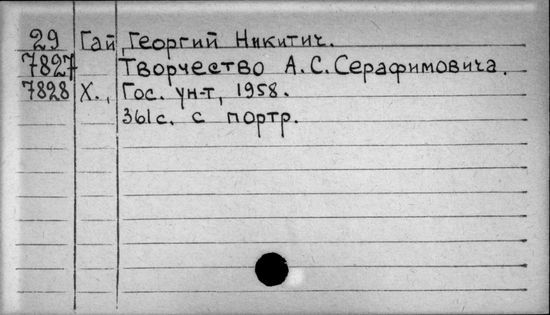 29 Гай, Георгий Никитич.
7827 Творчество А.С.Серафимовича.
7828 Х., Гос. ун-т, 1958.
361с. с портр.